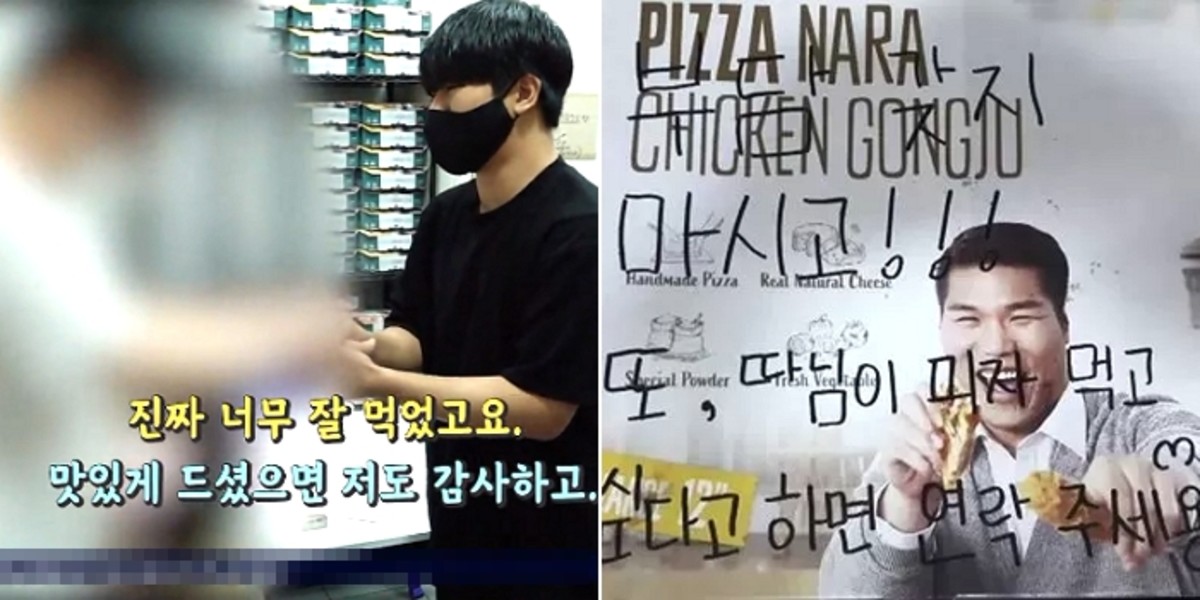 진짜 너무 잘 먹었고요.
맛있게 드셨으면 저도 감사하고.
PIZZA NARA
CHICKEN GONGJU
부담 갖지
마시고!!!
Handmade Pizza Real Natural Cheese
Special Powder Fresh Vegetable
또, 따님이 피자 먹고
싶다고 하면 연락 주세용